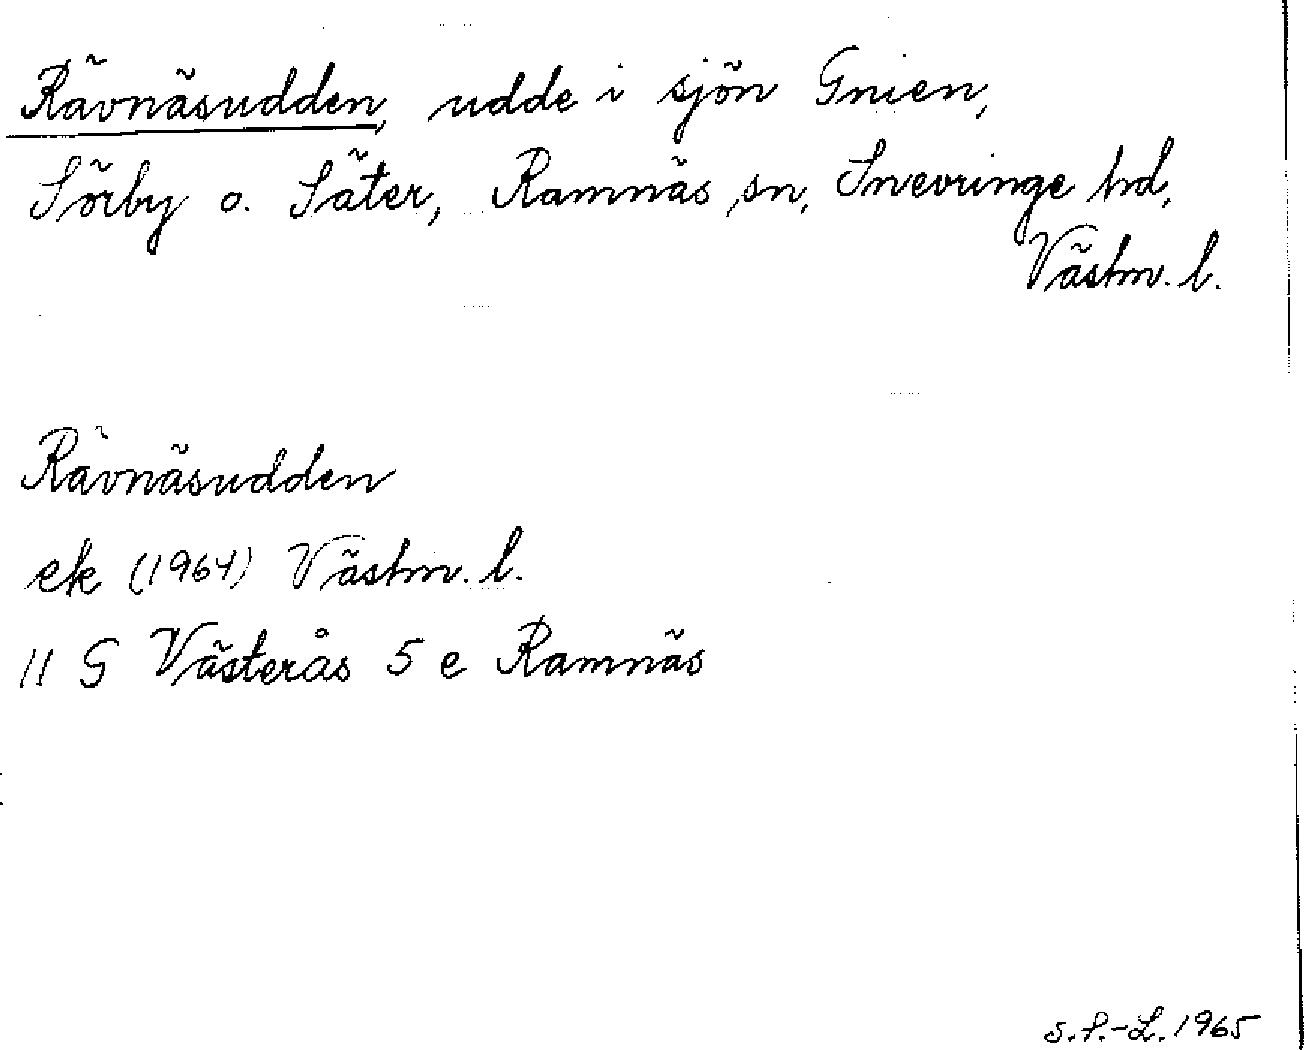 Rävnäsudden, udde i sjön Gnien,
Sörby o. Säter, Ramnäs sn, Snevringe hd,
Västm. l.
Rävnäsudden
ek (1964) Västm. l.
11 G Västerås 5 e Ramnäs
S.P.-L. 1965